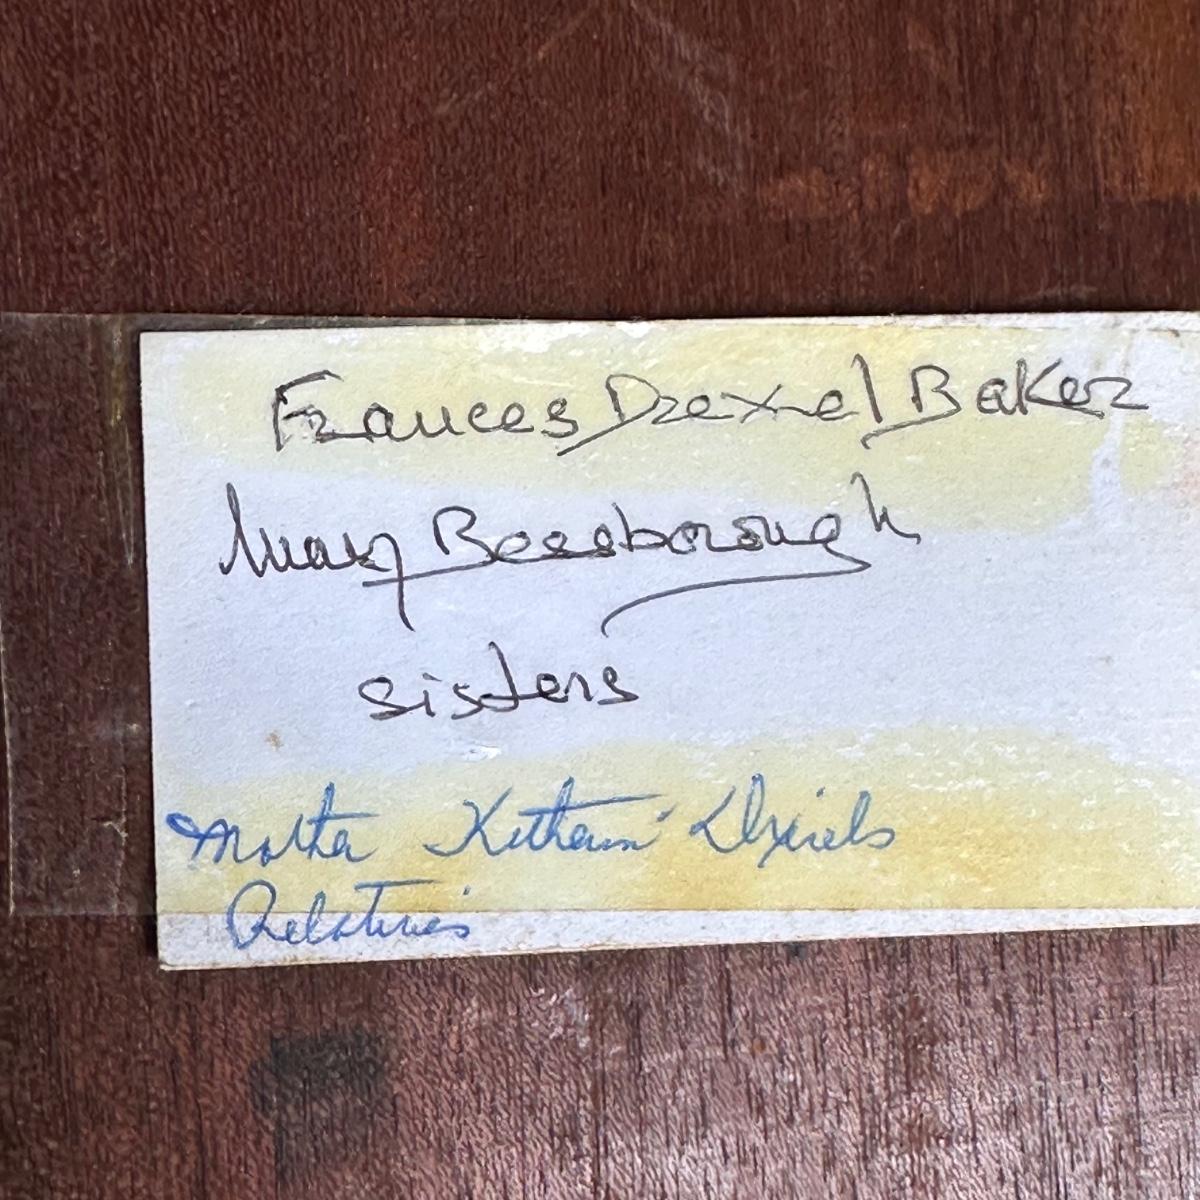 Frances Drexel Baker
Mary Bessborough
sisters
Mother Katharine Drexel's
Relatives